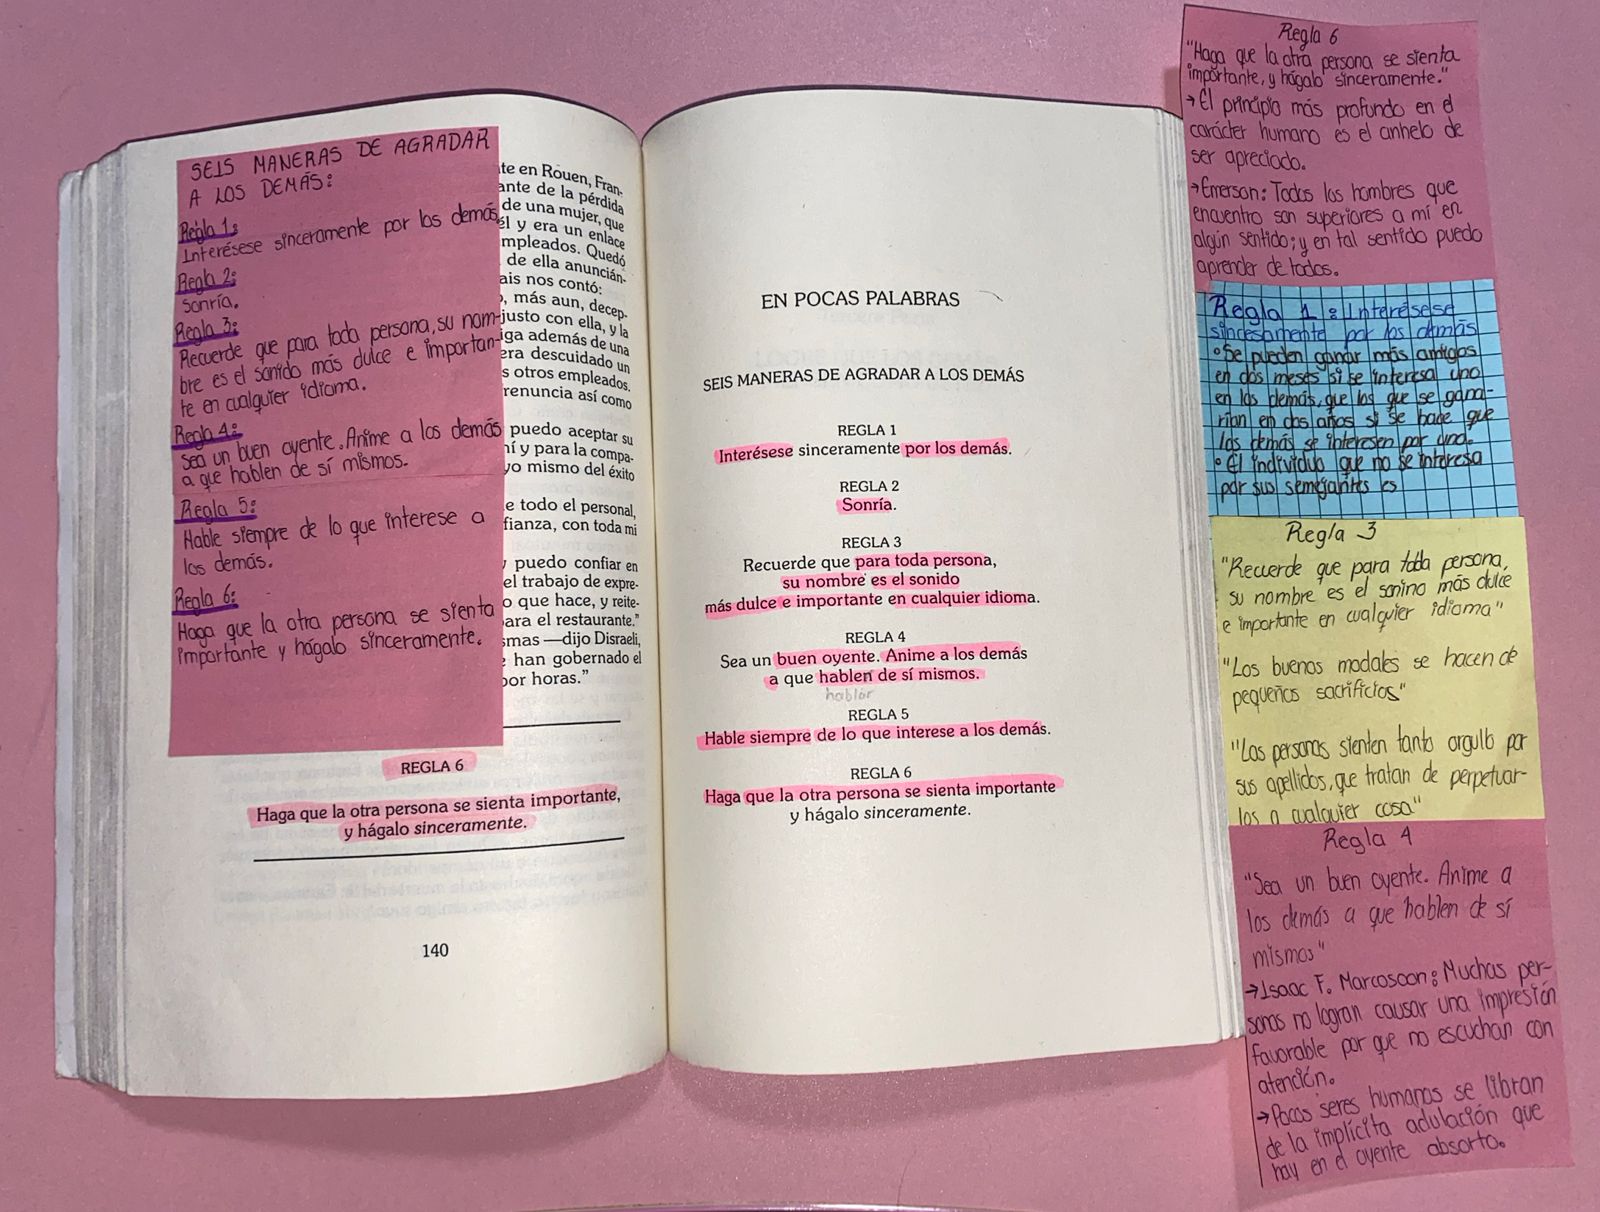 SEIS MANERAS DE AGRADAR
A LOS DEMÁS:
Regla 1:
Interésese sinceramente por los demás
Regla 2:
Sonría.
Regla 3:
Recuerde que para toda persona, su nom-
bre es el sonido más dulce e importan-
te en cualquier idioma.
Regla 4:
Sea un buen oyente. Anime a los demás
a que hablen de sí mismos.
Regla 5:
Hable siempre de lo que interese a
los demás.
Regla 6:
Haga que la otra persona se sienta
importante y hágalo sinceramente.
te en Rouen, Fran-
ante de la pérdida
de una mujer, que
él y era un enlace
mpleados. Quedó
de ella anuncián-
ais nos contó:
, más aun, decep-
justo con ella, y la
iga además de una
era descuidado un
s otros empleados.
renuncia así como
puedo aceptar su
í y para la compa-
yo mismo del éxito
e todo el personal,
fianza, con toda mi
puedo confiar en
el trabajo de expre-
o que hace, y reite-
ara el restaurante."
smas —dijo Disraeli,
han gobernado el
por horas."
REGLA 6
Haga que la otra persona se sienta importante,
y hágalo sinceramente.
140
EN POCAS PALABRAS
SEIS MANERAS DE AGRADAR A LOS DEMÁS
REGLA 1
Interésese sinceramente por los demás.
REGLA 2
Sonría.
REGLA 3
Recuerde que para toda persona,
su nombre es el sonido
más dulce e importante en cualquier idioma.
REGLA 4
Sea un buen oyente. Anime a los demás
a que hablen de sí mismos.
hablar
REGLA 5
Hable siempre de lo que interese a los demás.
REGLA 6
Haga que la otra persona se sienta importante
y hágalo sinceramente.
Regla 6
"Haga que la otra persona se sienta
importante, y hágalo sinceramente."
→El principio más profundo en el
carácter humano es el anhelo de
ser apreciado.
→Emerson: Todos los hombres que
encuentro son superiores a mí en
algún sentido; y en tal sentido puedo
aprender de todos.
Regla 1: Interésese
sinceramente por los demás
•Se pueden ganar más amigos
en dos meses si se interesa uno
en los demás, que los que se gana-
rían en dos años si se hace que
los demás se interesen por uno.
•El individuo que no se interesa
por sus semejantes es
Regla 3
"Recuerde que para toda persona,
su nombre es el sonino más dulce
e importante en cualquier idioma"
"Los buenos modales se hacen de
pequeños sacrificios"
"Las personas sienten tanto orgullo por
sus apellidos, que tratan de perpetuar-
los a cualquier cosa"
Regla 4
"Sea un buen oyente. Anime a
los demás a que hablen de sí
mismos"
→Isaac F. Marcosoon: Muchas per-
sonas no logran causar una impresión
favorable por que no escuchan con
atención.
→Pocos seres humanos se libran
de la implícita adulación que
hay en el oyente absorto.